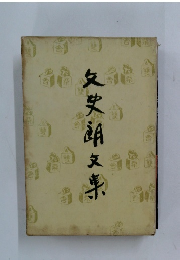 文史朗文集